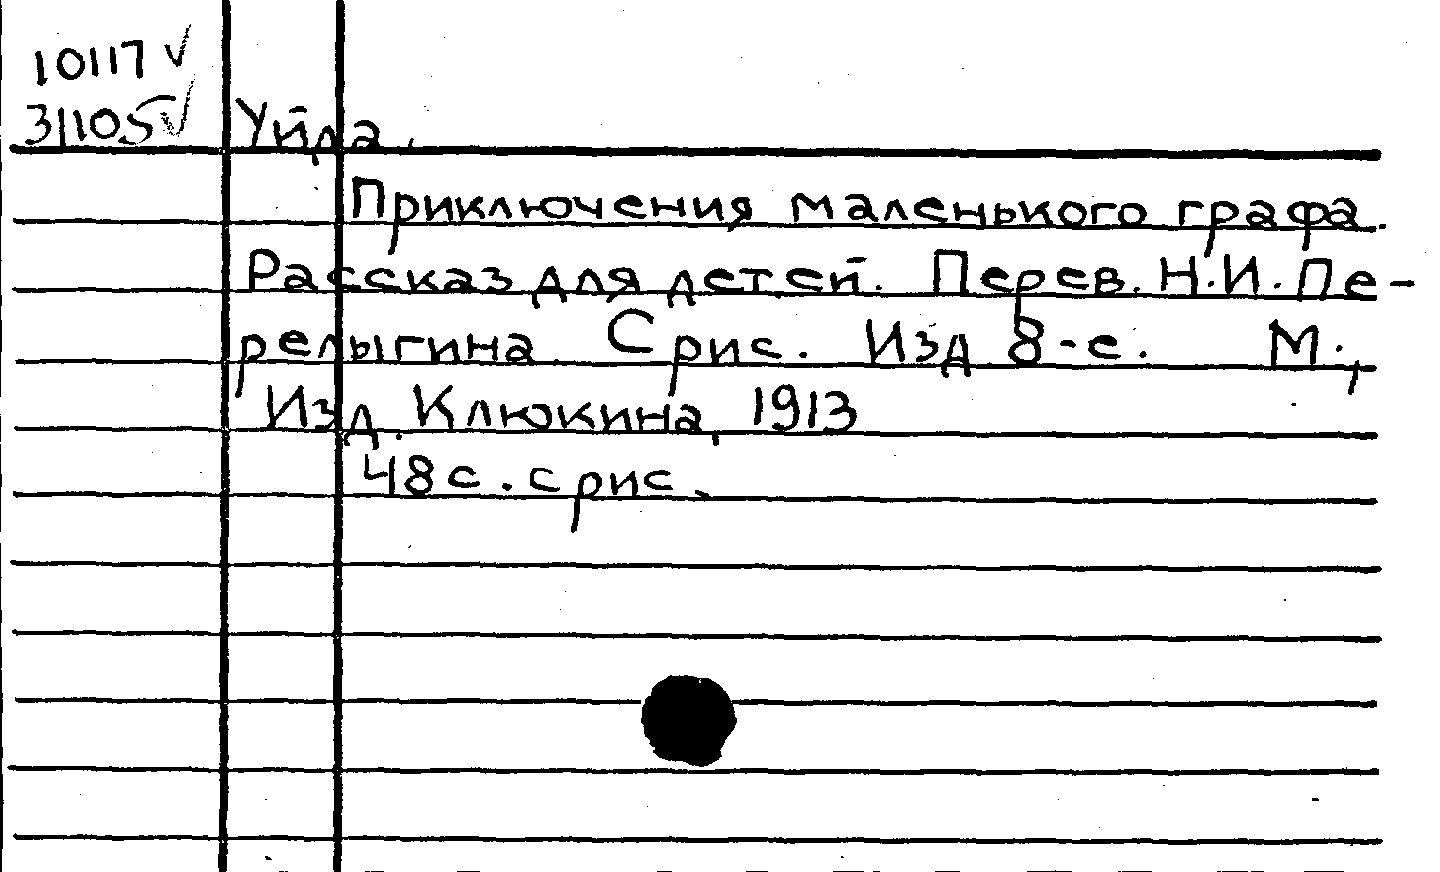 10117 ✓
31105 ✓ Уйда.
Приключения маленького графа.
Рассказ для детей. Перев. Н.И. Пе-
релыгина. С рис. Изд 8-е. М.,
Изд. Клюкина, 1913
48 с. с рис.